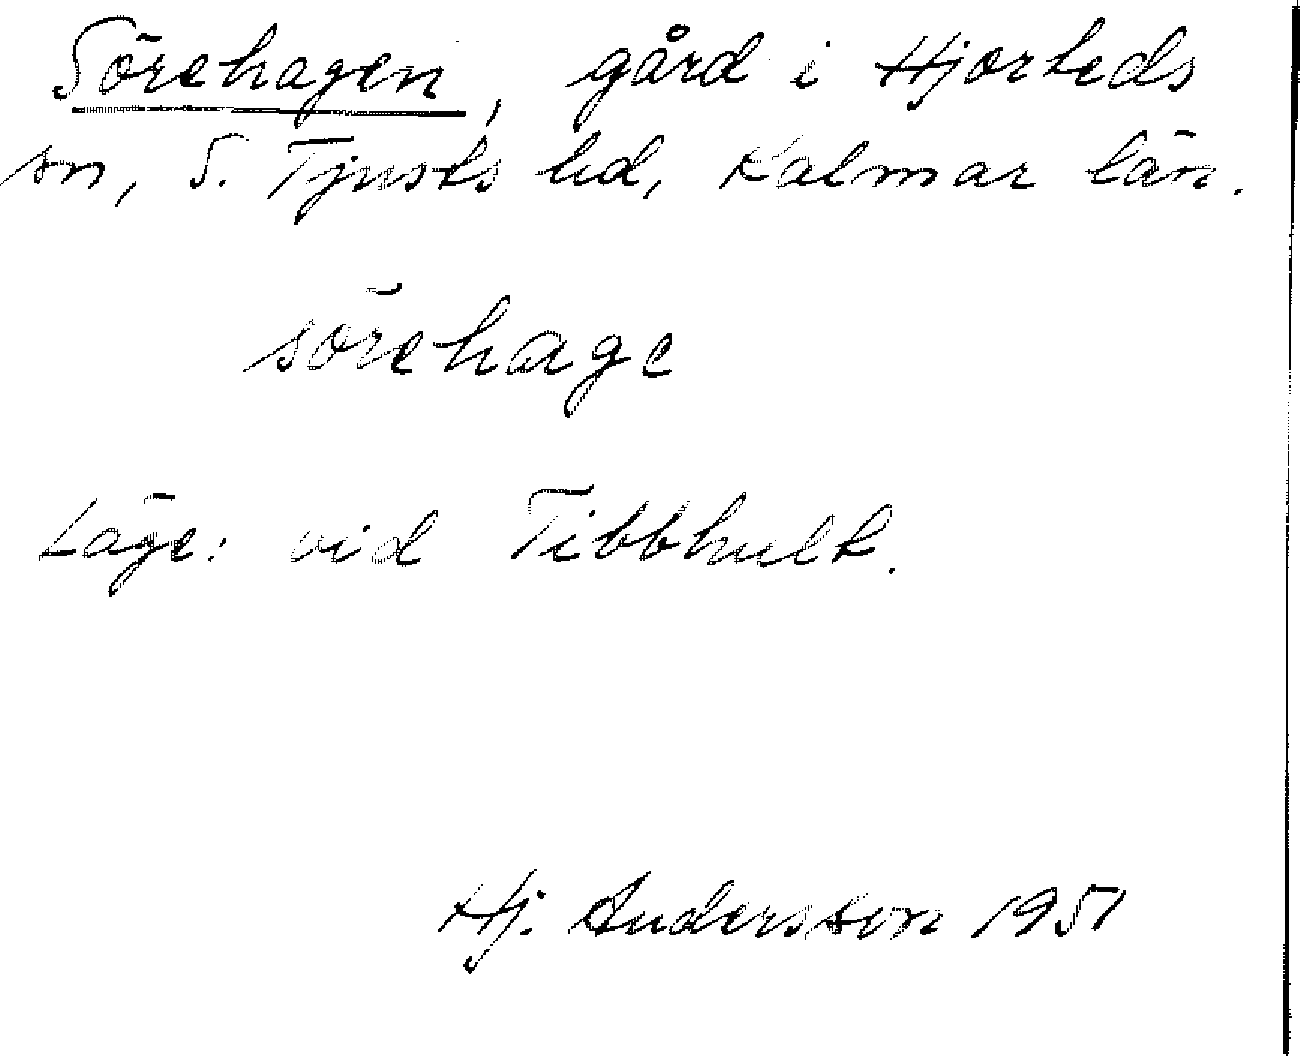 Sörehagen, gård i Hjorteds
sn, S. Tjusts hd, Kalmar län.
sörehage
Läge: vid Tibbhult.
Hj. Andersson 1951